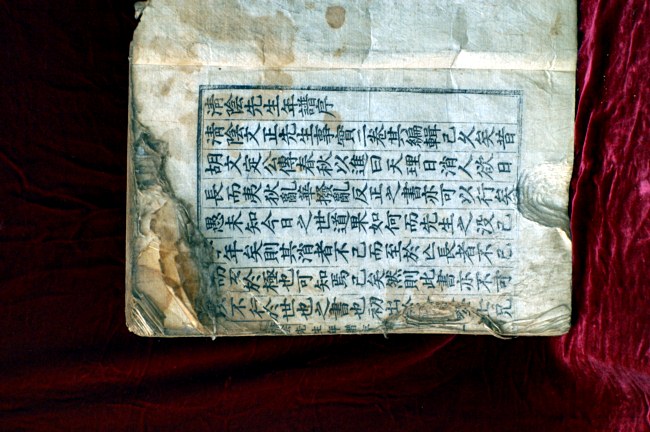 清陰先生年譜序
清陰文正先生事實二卷其編輯已久矣昔
胡文定公傳春秋以進曰天理日消人欲日
長而夷狄亂華撥亂反正之書亦可以行矣
愚未知今日之世道果如何而先生之没已
年矣則其消者不已而至於亾長者不已
而於極也可知焉已矣然則此書亦不可
不於世也之書也初出兄